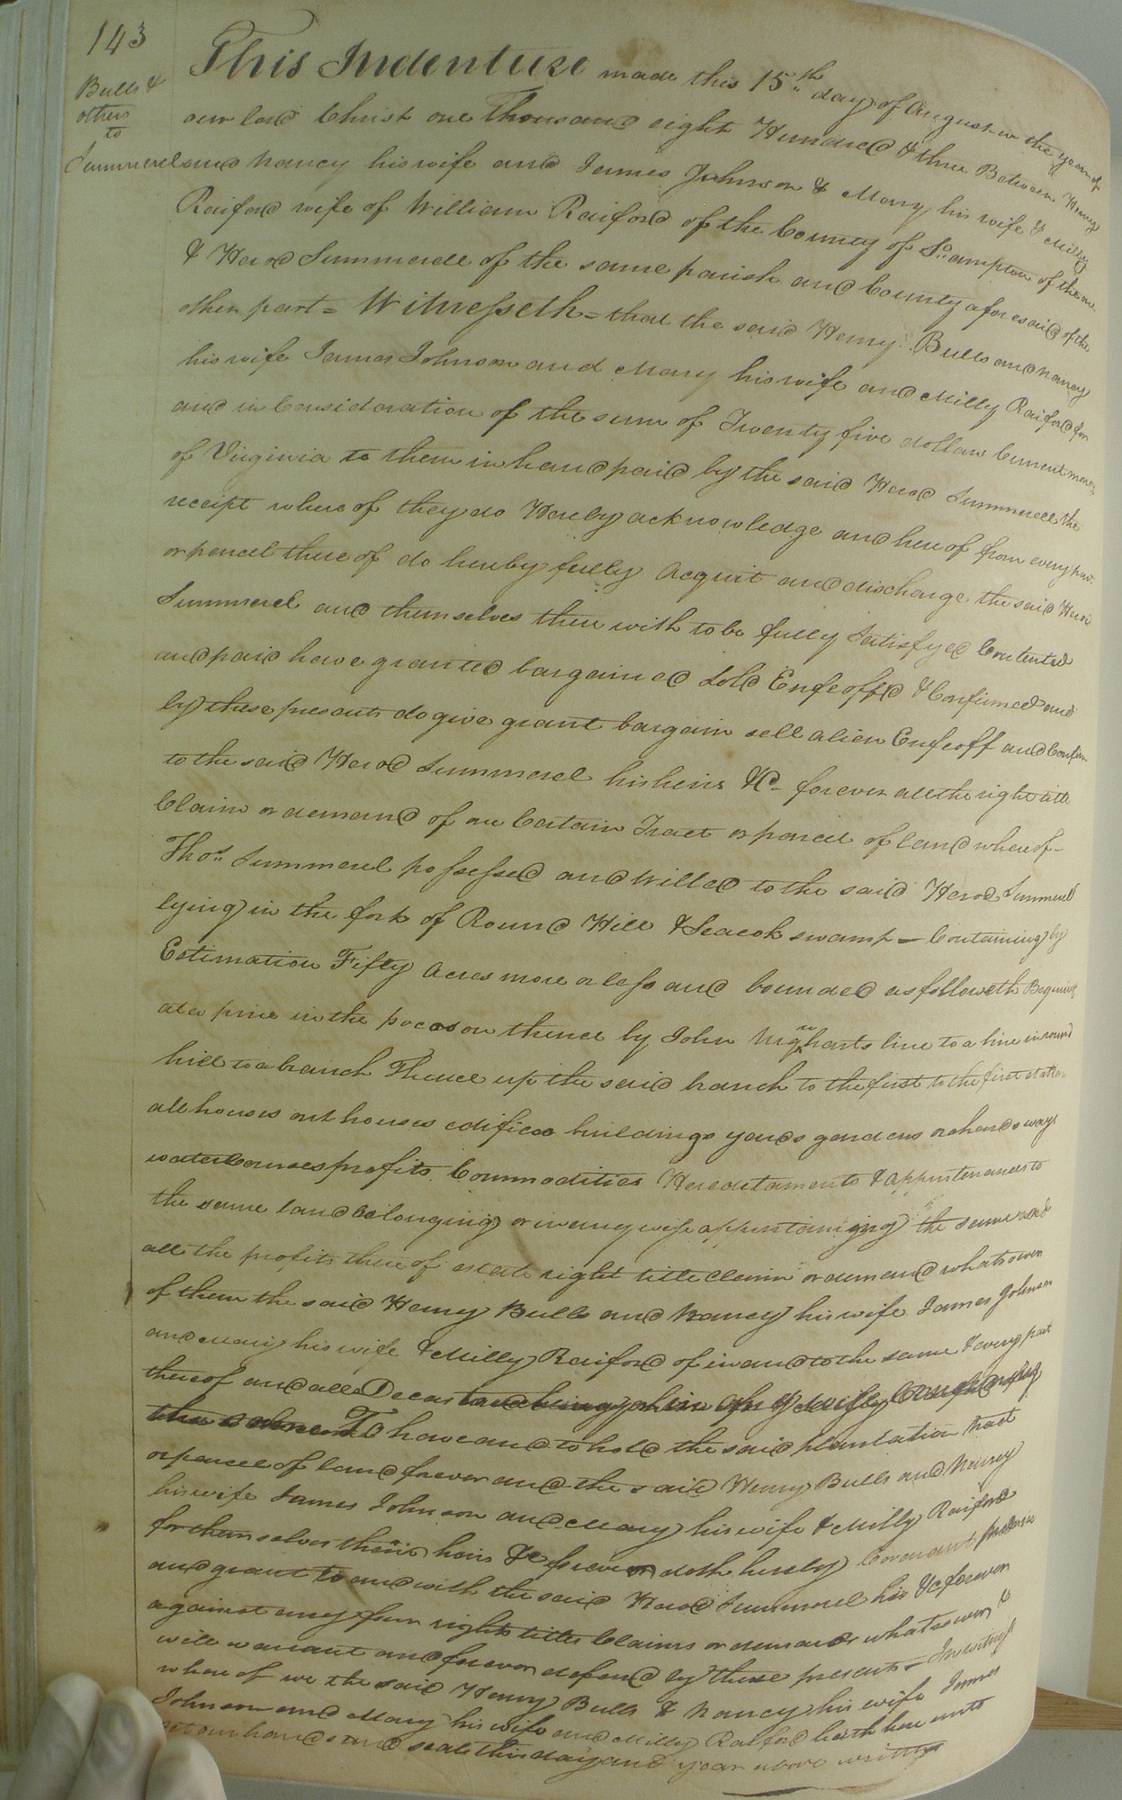 143
Bulls &
others
to
Summerel
This Indenture made this 15th day of August in the year of
our lord Christ one Thousand eight Hundred & three Between Henry
Bulls and Nancy his wife and James Johnson & Mary his wife & Milly
Raiford wife of William Raiford of the County of So.ampton of the one
& Herod Summerell of the same parish and County aforesaid of the
other part = Witnesseth = that the said Henry Bulls and Nancy
his wife James Johnson and Mary his wife and Milly Raiford for
and in Consideration of the sum of Twenty five dollars Current money
of Virginia to them in hand paid by the said Herod Summerell the
receipt where of they do Hereby acknowledge and here of from every part
or parcel there of do hereby fully Acquit and discharge the said Herod
Summerel and themselves there with to be fully Satisfyed Contented
and paid have granted bargained Sold Enfeoffd & Confirmed and
by these presents do give grant bargain sell alien Enfeoff and Confirm
to the said Herod Summerel his heirs &c forever all the right title
Claim or demand of one Certain Tract or parcel of land where of
Thos. Summerel possessed and Willed to the said Herod Summerel
lying in the fork of Round Hill & Seacok swamp - Containing by
Estimation Fifty Acres more or less and bounded as followeth Begining
at a pine in the pocoson thence by John harts line to a line in round
hill to a branch Thence up the said branch to the first to the first station
all houses out houses edifices buildings yards gardens orchards ways
watercourses profits Commodities Hereditaments & appurtenances to
the same land belonging or in any wise appertaining the same and
all the profits there of estate right title claim or demand whatsoever
of them the said Henry Bulls and Nancy his wife James Johnson
and Mary his wife & Milly Raiford of in and to the same & every part
thereof and all
To have and to hold the said plantation tract
or parcel of land forever and the said Henry Bulls and Nancy
his wife James Johnson and Mary his wife & Milly Raiford
for themselves their heirs &c forever doth hereby Covenant promise
and grant to and with the said Herod Summerel his &c forever
against any from rights titles Claims or demands whatsoever &
will warrant and forever defend by these presents - In witness
where of we the said Henry Bulls & Nancy his wife James
Johnson and Mary his wife and Milly Raiford hath here unto
set our hands and seals this day and year above written